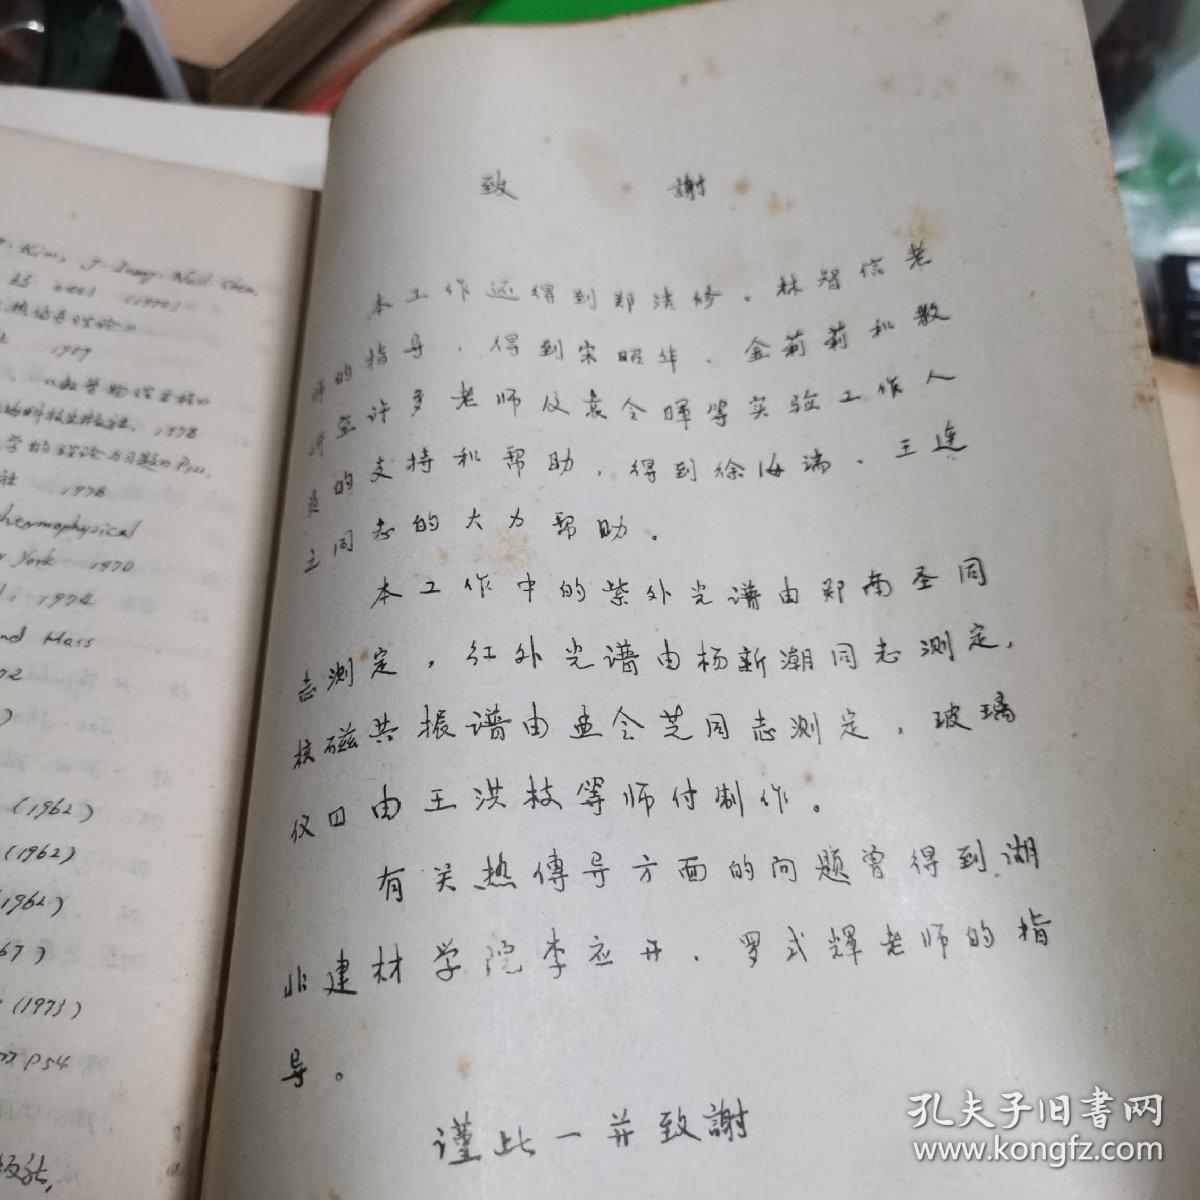 致 謝
本工作还得到郑洁修、林智信老
师的指导,得到宋昭华、金莉莉和教
研室许多老师及袁令晖等实验工作人
员的支持和帮助,得到徐海涛、王连
之同志的大力帮助。
本工作中的紫外光谱由郑南圣同
志测定,红外光谱由杨新潮同志测定,
核磁共振谱由孟令芝同志测定,玻璃
仪四由王洪枝等师付制作。
有关热傳导方面的问题曾得到湖
北建材学院李应开、罗式輝老师的指
导。
謹此一并致謝
Kim, J. Inorg. Nucl. Chem.
1978
社 1978
Thermophysical
York 1970
1974
and Mass
(1962)
(1962)
(1973)
P54
版社,
孔夫子旧书网
www.kongfz.com